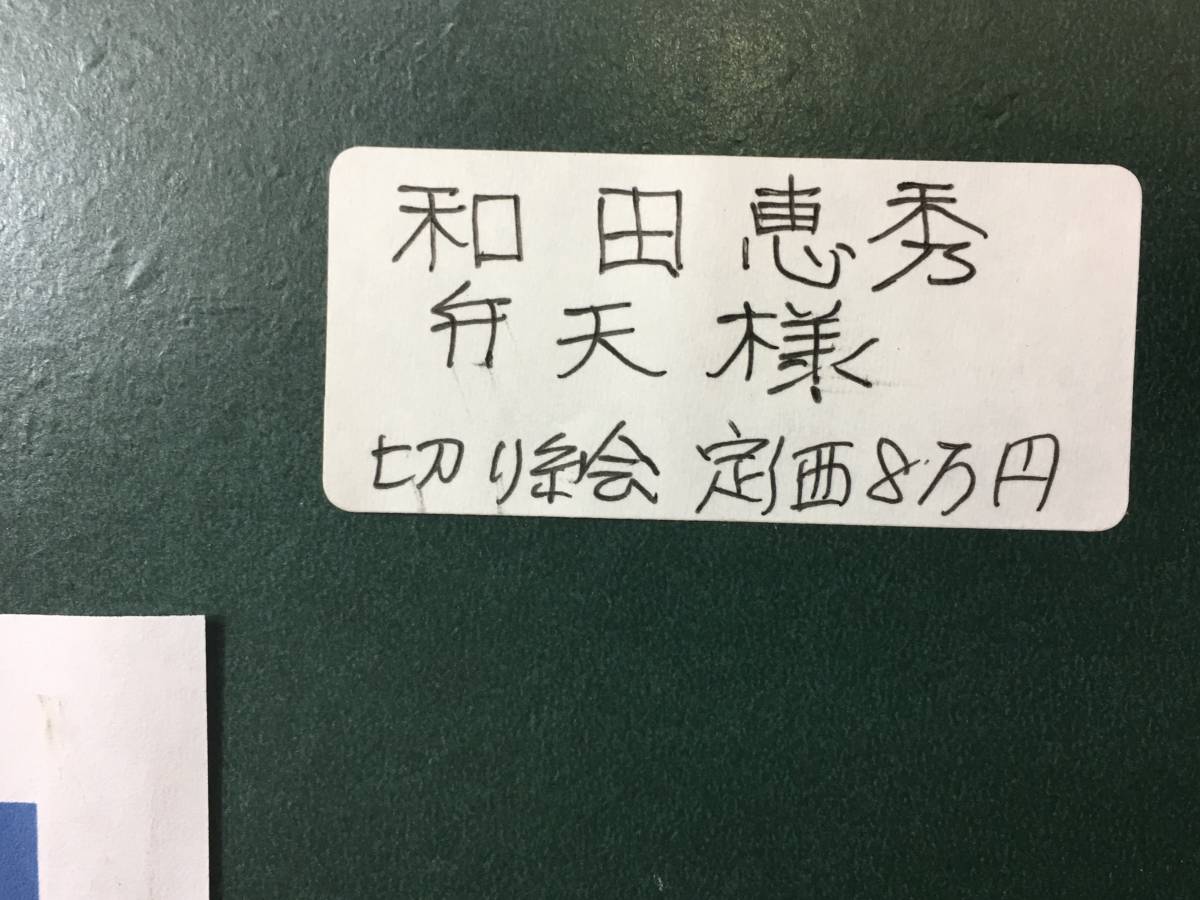 和田恵秀
弁天様
切り絵 定価8万円